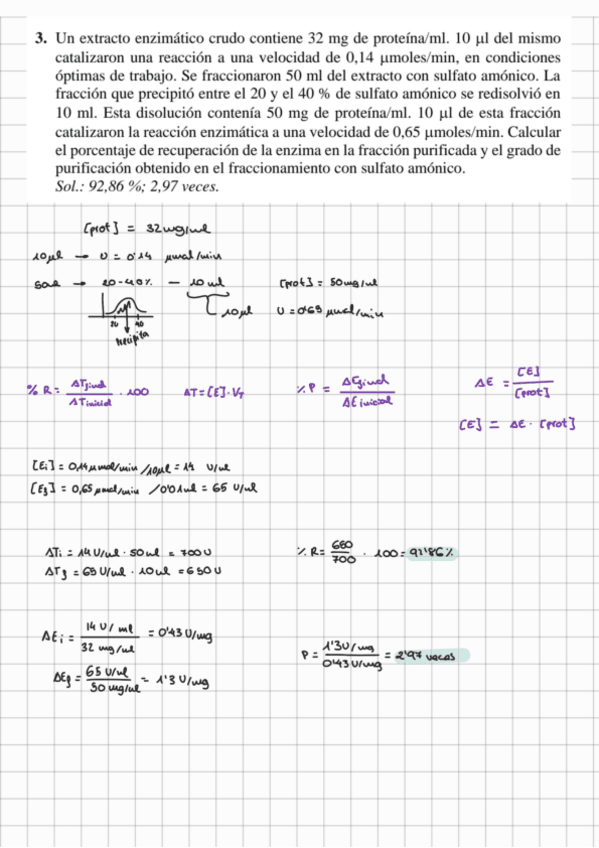 3. Un extracto enzimático crudo contiene 32 mg de proteína/ml. 10 µl del mismo
catalizaron una reacción a una velocidad de 0,14 µmoles/min, en condiciones
óptimas de trabajo. Se fraccionaron 50 ml del extracto con sulfato amónico. La
fracción que precipitó entre el 20 y el 40 % de sulfato amónico se redisolvió en
10 ml. Esta disolución contenía 50 mg de proteína/ml. 10 µl de esta fracción
catalizaron la reacción enzimática a una velocidad de 0,65 µmoles/min. Calcular
el porcentaje de recuperación de la enzima en la fracción purificada y el grado de
purificación obtenido en el fraccionamiento con sulfato amónico.
Sol.: 92,86 %; 2,97 veces.
[prot] = 32mg/ml
10µl → v = 0'14 µmol/min
50ml → 20-40% - 10 ml [prot] = 50mg/ml
10µl v = 0'65 µmol/min
20 40
precipita
% R = ATfinal / ATinicial · 100 AT = [E]·VT % P = AEfinal / AEinicial AE = [E] / [prot]
[E] = AE · [prot]
[Ei] = 0,14 µmol/min /10µl = 14 U/ml
[Ef] = 0,65 µmol/min /0'01ml = 65 U/ml
ATi = 14 U/ml · 50ml = 700U % R = 650 / 700 · 100 = 92'86%
ATf = 65 U/ml · 10ml = 650U
AEi = 14 U/ml / 32 mg/ml = 0'43 U/mg
P = 1'3U/mg / 0'43 U/mg = 2'97 veces
AEf = 65 U/ml / 50 mg/ml = 1'3 U/mg